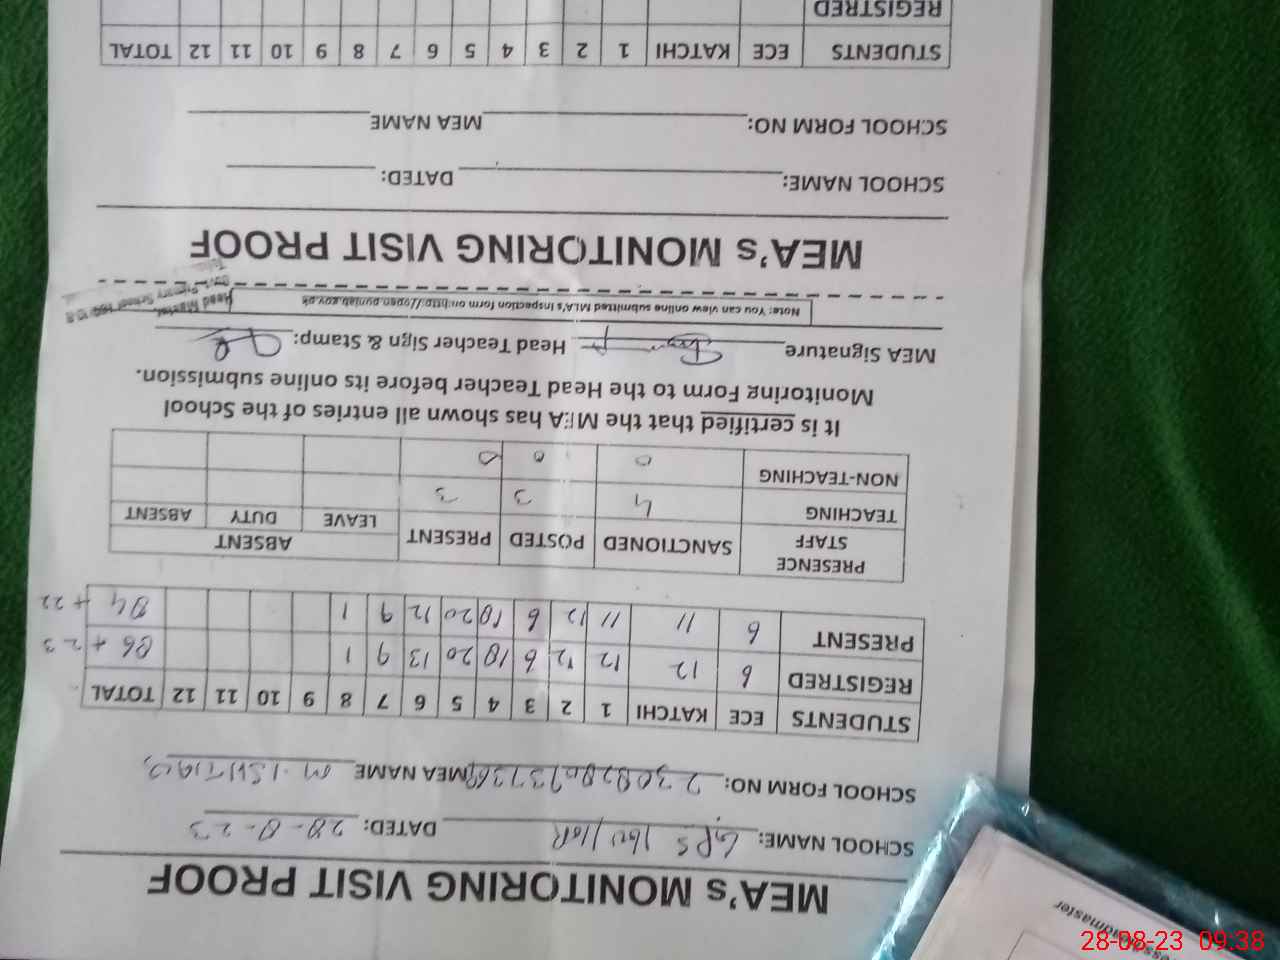 MEA's MONITORING VISIT PROOF
SCHOOL NAME: GPS 160/10R DATED: 28-8-23
SCHOOL FORM NO: MEA NAME M. ISHTIAQ
STUDENTS ECE KATCHI 1 2 3 4 5 6 7 8 9 10 11 12 TOTAL
REGISTRED 6 12 12 12 6 18 20 13 9 1 86 + 23
PRESENT 6 11 11 12 6 18 20 12 9 1 84 + 22
PRESENCE STAFF SANCTIONED POSTED PRESENT ABSENT
LEAVE DUTY ABSENT
TEACHING 4 3 3
NON-TEACHING 0 0 0
It is certified that the MEA has shown all entries of the School
Monitoring Form to the Head Teacher before its online submission.
MEA Signature Head Teacher Sign & Stamp:
Note: You can view online submitted MLA's inspection form on:http://open.punjab.gov.pk
Head Master
Govt. Primary School
MEA's MONITORING VISIT PROOF
SCHOOL NAME: DATED:
SCHOOL FORM NO: MEA NAME
STUDENTS ECE KATCHI 1 2 3 4 5 6 7 8 9 10 11 12 TOTAL
REGISTRED
28-08-23 09:38